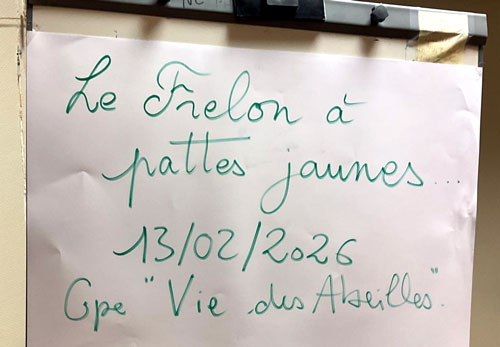 Le Frelon à
pattes jaunes...
13/02/2026
Gpe "Vie des Abeilles".